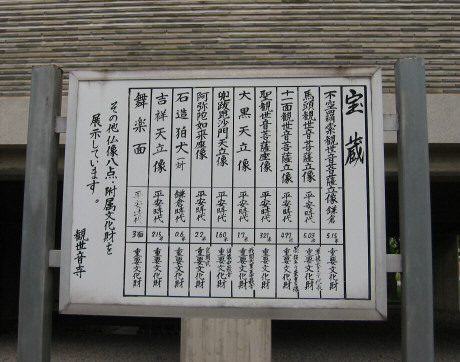 宝蔵
不空羂索観世音菩薩立像 鎌倉 5.15 重要文化財
馬頭観世音菩薩立像 平安時代 5.03 重要文化財
十一面観世音菩薩立像 平安時代 重要文化財
聖観世音菩薩座像 平安時代 3.21 重要文化財
大黒天立像 平安時代 1.7 重要文化財
兜跋毘沙門天立像 平安時代 1.60 重要文化財
阿弥陀如来座像 平安時代 2.2 重要文化財
石造狛犬 一対 鎌倉時代 0.6 重要文化財
吉祥天立像 平安時代 2.15 重要文化財
舞楽面 3面 重要文化財
その他仏像八点・附属文化財を
展示しています。
観世音寺